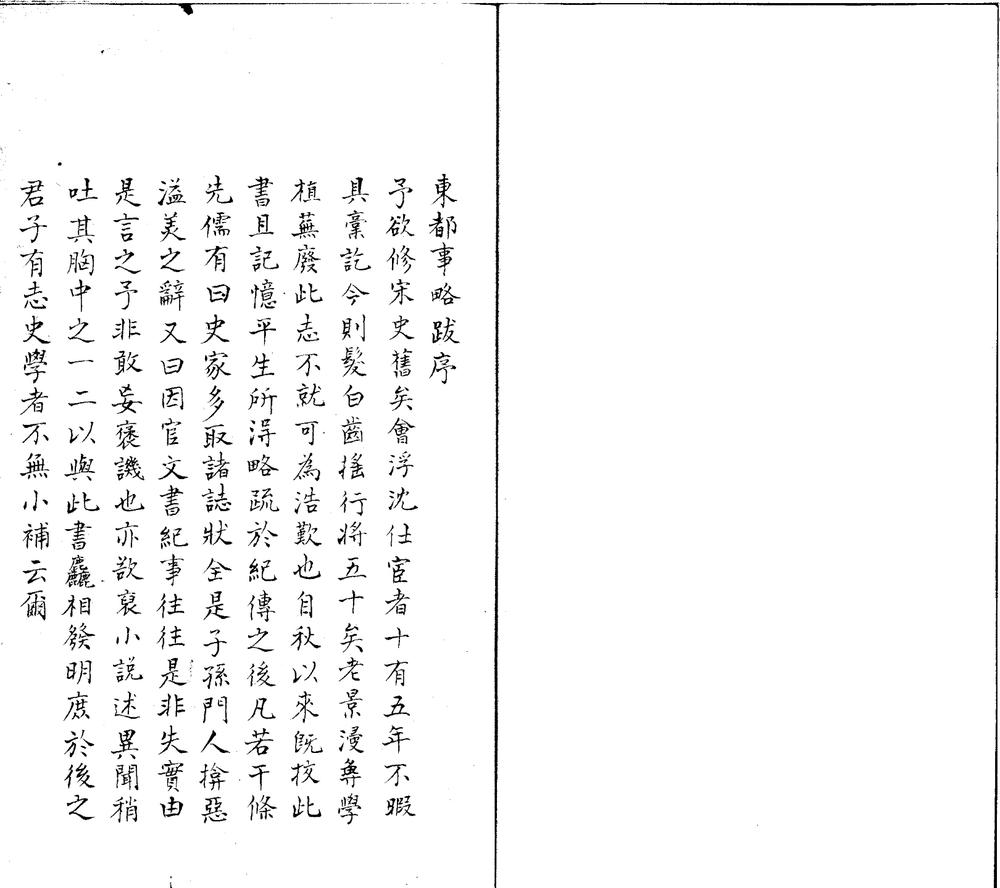 東都事略跋序
予欲修宋史舊矣會浮沈仕宦者十有五年不暇
具稾訖今則髮白齒搖行將五十矣老景漫尋學
植蕪廢此志不就可為浩歎也自秋以來既挍此
書且記憶平生所淂略疏於紀傳之後凡若干條
先儒有曰史家多取諸誌狀全是子孫門人揜惡
溢美之辭又曰因官文書紀事往往是非失實由
是言之予非敢妄褒譏也亦欲裒小説述異聞稍
吐其胸中之一二以與此書麤相發明庶於後之
君子有志史學者不無小補云爾